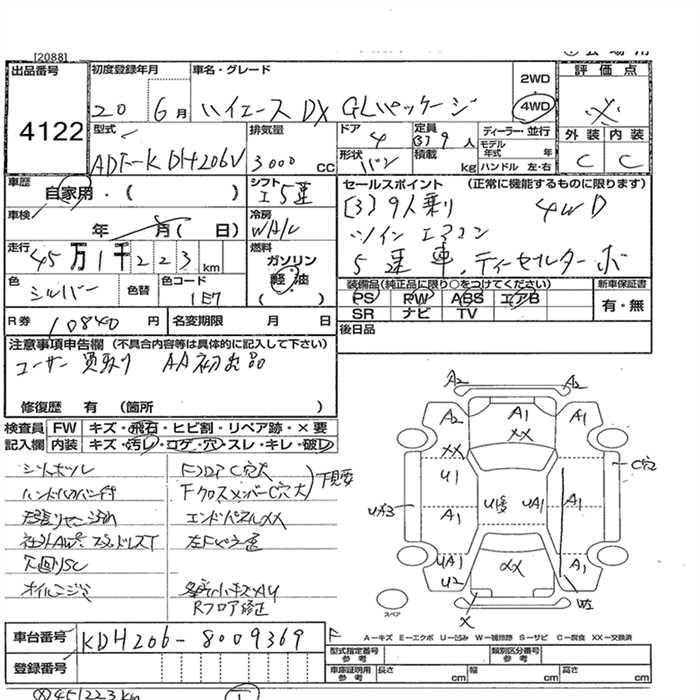 [2088]
出品番号 初度登録年月 車名・グレード 2WD 評価点
4WD
20 6月 ハイエース DX GLパッケージ
4122
型式 排気量 ドア 定員 ディーラー・並行 外装 内装
4 (3)9人 モデル年式 年
ADF-KDH206V 3000cc 形状 バン 積載 kg ハンドル 左・右 C C
車歴 自家用・( ) シフト I5速 セールスポイント (正常に機能するものに限ります)
車検 年 月( 日) 冷房 WA/C [3]9人乗り 4WD
走行 45万1千223km 燃料 ガソリン 軽油 ( ) ツインエアコン
色 シルバー 色替 色コード 1E7 5速車、ディーゼルターボ
装備品(純正品に限り○をつけてください) 新車保証書
PS PW ABS エアB 有・無
R券 10840円 名変期限 月 日 SR ナビ TV
注意事項申告欄 (不具合内容等は具体的に記入して下さい) 後日品
ユーザー買取り AA初出品
修復歴 有 (箇所
検査員 FW キズ・飛石・ヒビ割・リペア跡・×要
記入欄 内装 キズ・汚レ・コゲ・穴・スレ・キレ・破レ
シートホツレ FフロアC穴大
FクロスメンバーC穴大 下見要
エンドパネルXX
オイルニジミ
Rフロア修正
A2 A2
A2 A1 A1
XX XX C穴
U1
UA3 A1 UA1 A1
UA1 XX A1
U2 W2
X
スペア
車台番号 KDH206-8009369
登録番号
A－キズ E－エクボ U－凹み W－補修跡 S－サビ C－腐食 XX－交換済
型式指定番号 参考 類別区分番号 参考
車庫証明用 参考 長さ cm 幅 cm 高さ cm
451223km